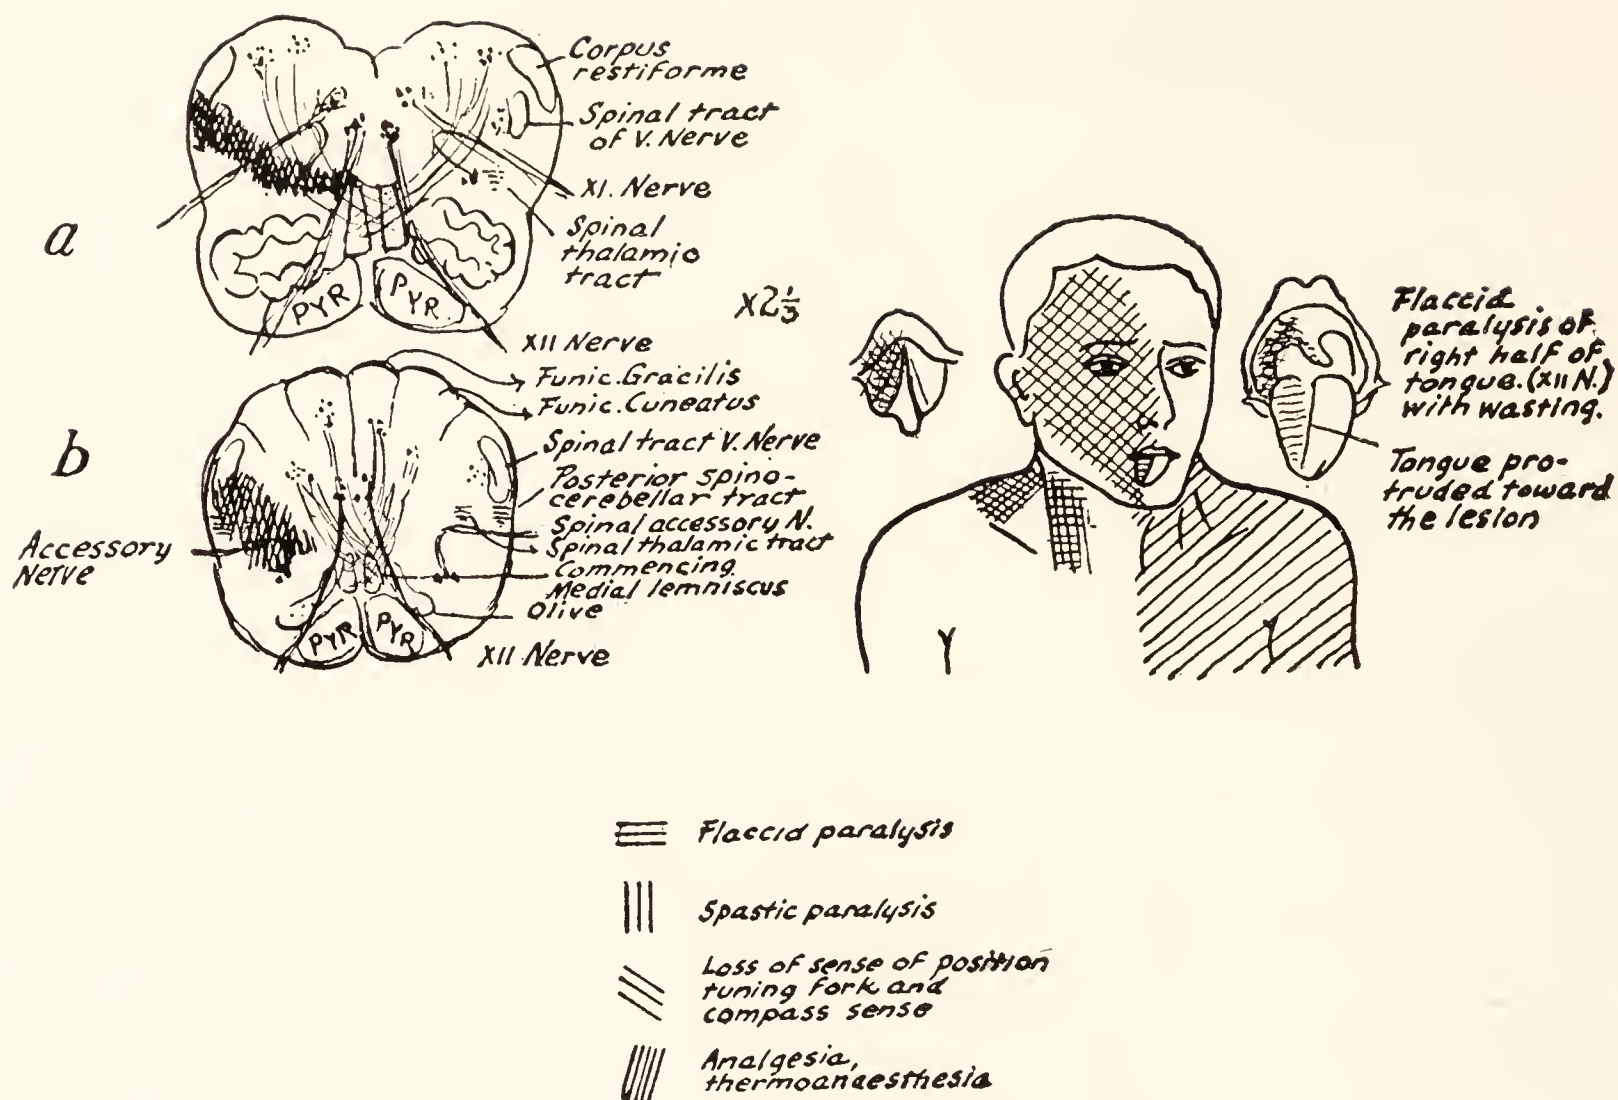 a
Corpus
restiforme
Spinal tract
of V. Nerve
XI. Nerve
Spinal
thalamic
tract
PYR
PYR.
X2⅓
XII Nerve
b
Funic. Gracilis
Funic. Cuneatus
Spinal tract V. Nerve
Posterior spino-
cerebellar tract
Spinal accessory N.
Spinal thalamic tract
Commencing
Medial lemniscus
Olive
XII Nerve
Accessory
Nerve
PYR
PYR
Flaccid
paralysis of
right half of
tongue. (XII N.)
with wasting.
Tongue pro-
truded toward
the lesion
Flaccid paralysis
Spastic paralysis
Loss of sense of position
tuning fork and
compass sense
Analgesia,
thermoanaesthesia